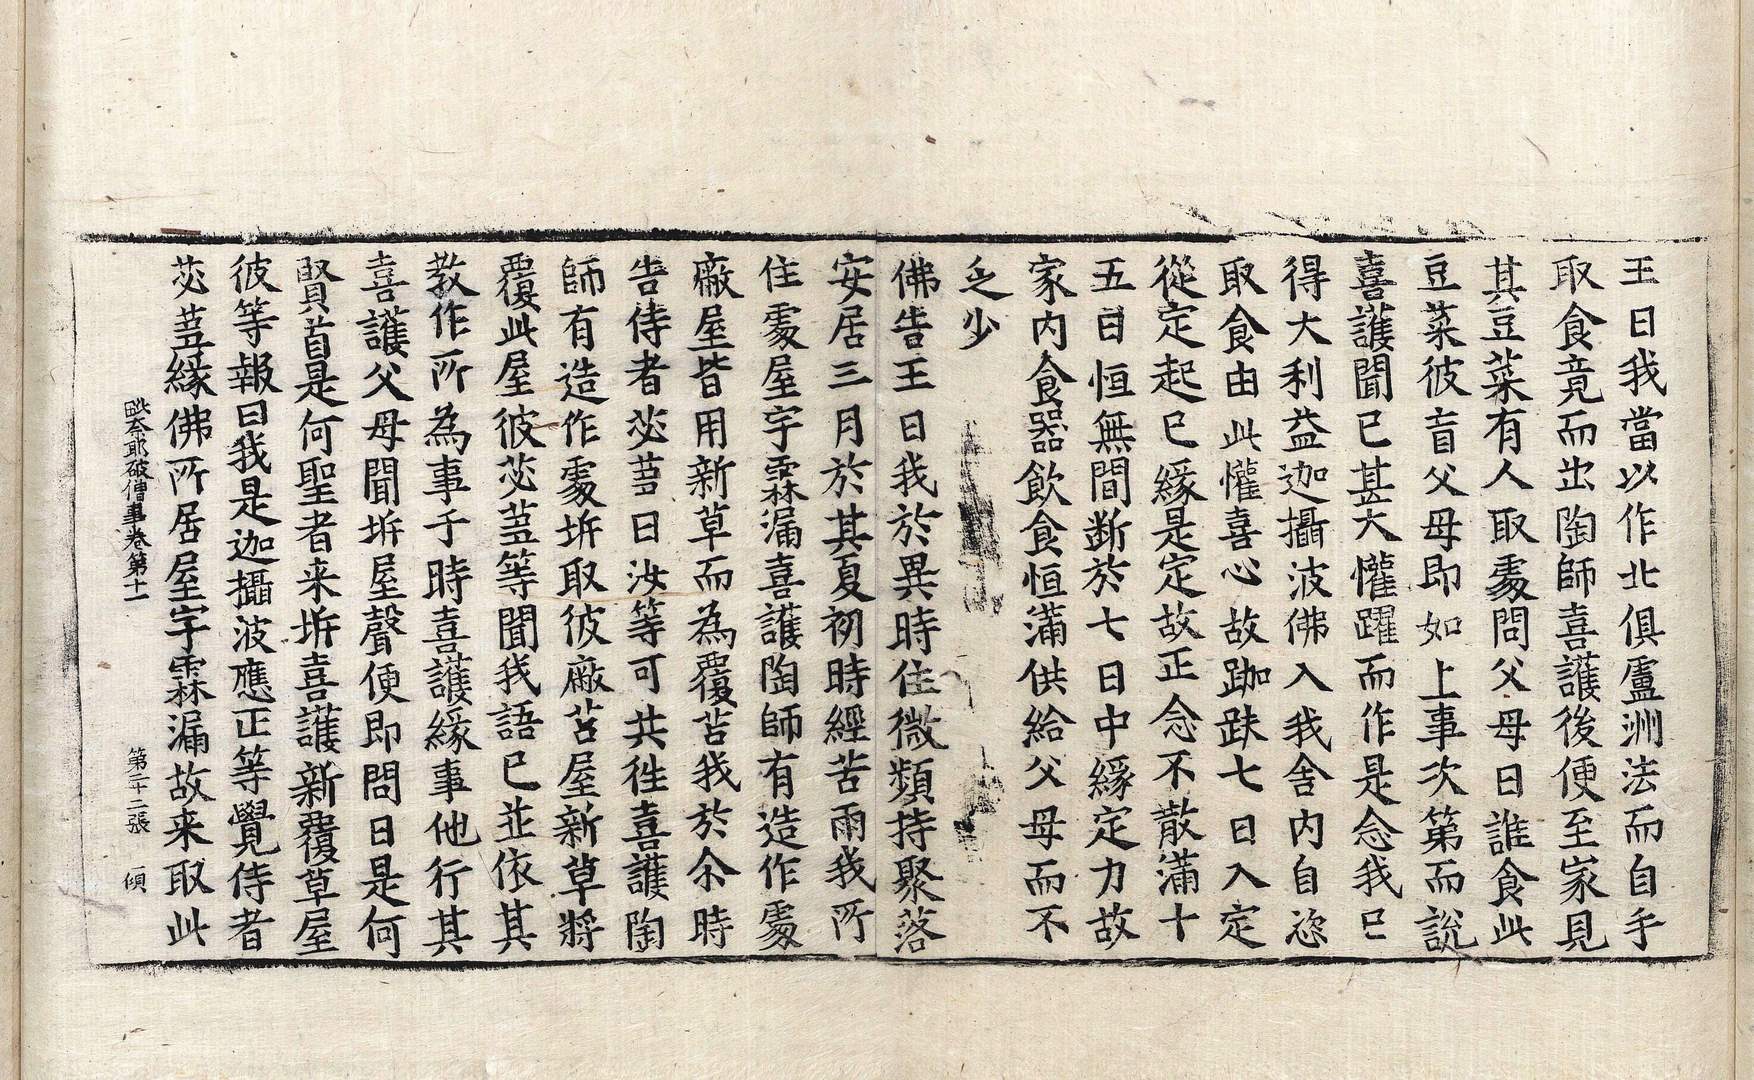 王曰我當以作北俱盧洲法而自手
取食竟而出陶師喜護後便至家見
其豆菜有人取處問父母曰誰食此
豆菜彼盲父母即如上事次第而說
喜護聞已甚大懽躍而作是念我已
得大利益迦攝波佛入我舍内自恣
取食由此懽喜心故跏趺七日入定
從定起已緣是定故正念不散滿十
五日恒無間斷於七日中緣定力故
家内食器飲食恒滿供給父母而不
乏少
佛告王曰我於異時住微頻持聚落
安居三月於其夏初時經苦雨我所
住處屋宇霖漏喜護陶師有造作處
廠屋皆用新草而為覆苫我於尒時
告侍者苾蒭曰汝等可共徃喜護陶
師有造作處坼取彼廠苫屋新草將
覆此屋彼苾蒭等聞我語已並依其
教作所為事于時喜護緣事他行其
喜護父母聞坼屋聲便即問曰是何
賢首是何聖者来坼喜護新覆草屋
彼等報曰我是迦攝波應正等覺侍者
苾蒭緣佛所居屋宇霖漏故来取此
毗奈耶破僧事卷第十一 第二十二張 傾